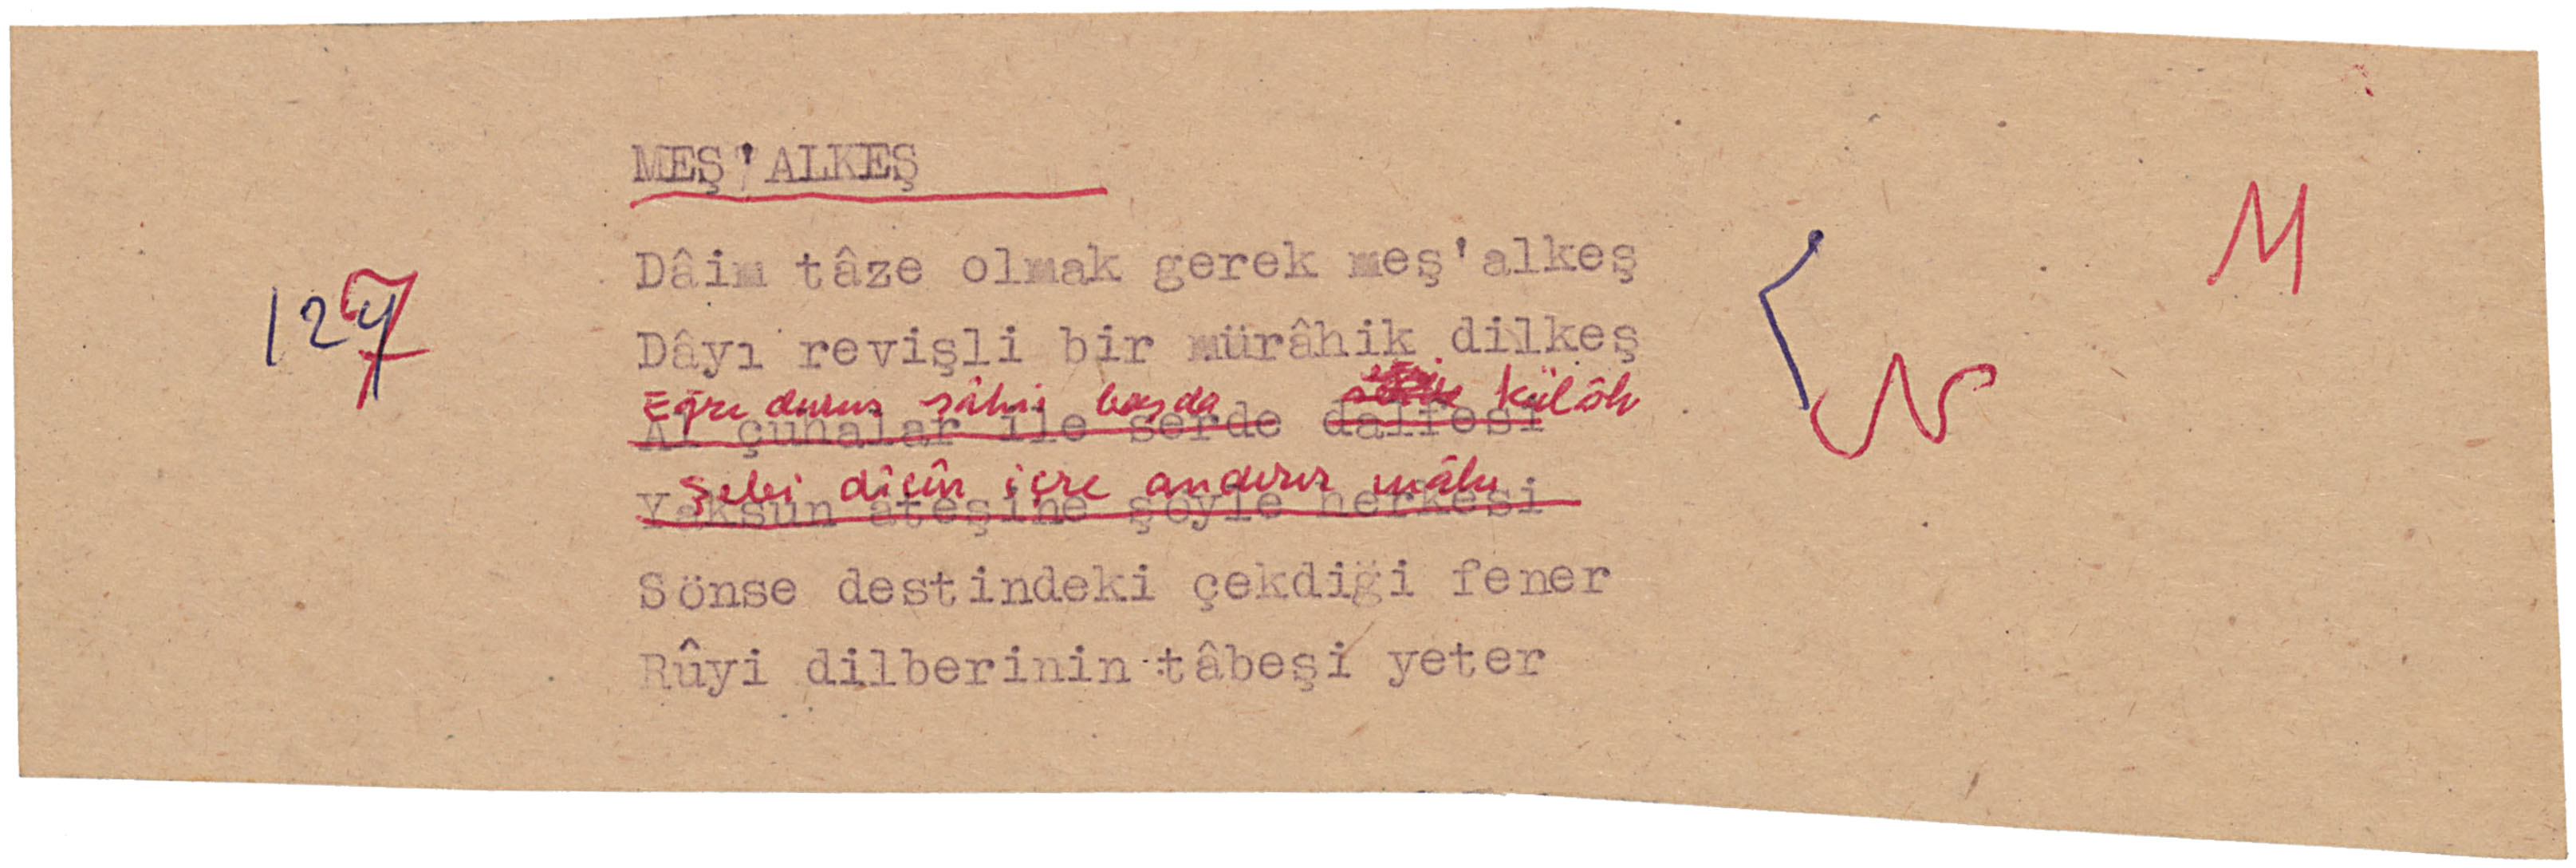 MEŞ'ALKEŞ
M
Dâim tâze olmak gerek meş'alkeş
127
Dâyı revişli bir mürâhik dilkeş
Eğri durur şâhi başda külâh
Al çuhalar ile serde dalfesi
Şebi dîcûr içre andırır mâhı
Yaksun ateşine şöyle herkesi
Sönse destindeki çekdiği fener
Rûyi dilberinin tâbeşi yeter